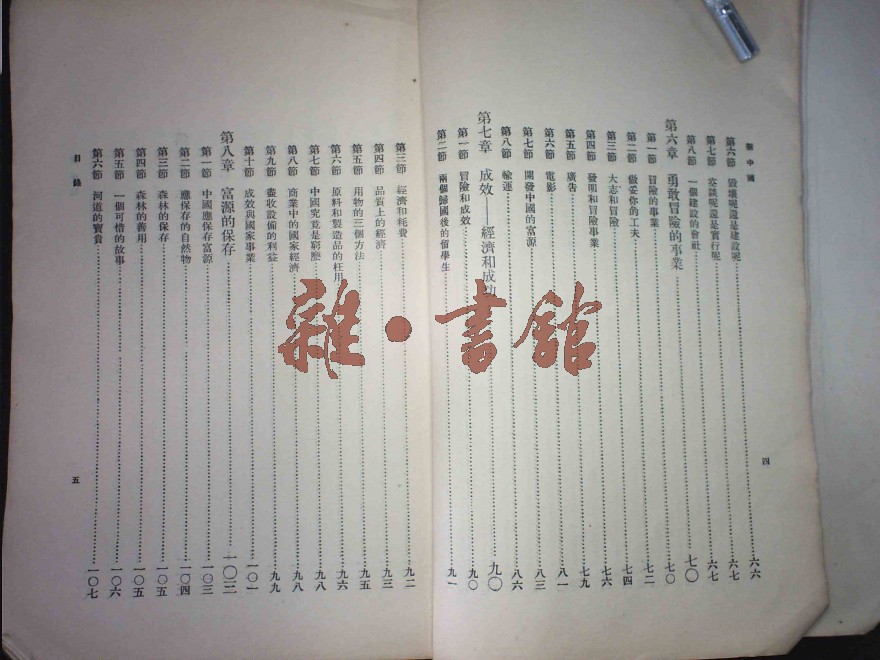 新中國
第六節 毀壞呢還是建設呢……六六
第七節 空談呢還是實行呢……六七
第八節 一個建設的會社……七〇
第六章 勇敢冒險的事業……七〇
第一節 冒險的事業……七二
第二節 做妥你的工夫……七四
第三節 大志和冒險……七六
第四節 發明和冒險事業……七九
第五節 廣告……八一
第六節 電影
第七節 開發中國的富源……八三
第八節 輸運……八六
第七章 成效——經濟和成功……九〇
第一節 冒險和成效……九〇
第二節 兩個歸國後的留學生……九一
四
第三節 經濟和耗費……九二
第四節 品質上的經濟……九三
第五節 用物的三個方法……九五
第六節 原料和製造品的枉用……九六
第七節 中國究竟是窮麼……九八
第八節 商業中的國家經濟……九八
第九節 盡收設備的利益……九九
第十節 成效與國家事業……一〇一
第八章 富源的保存……一〇三
第一節 中國應保存富源……一〇三
第二節 應保存的自然物……一〇四
第三節 森林的保存……一〇五
第四節 森林的善用……一〇五
第五節 一個可惜的故事……一〇六
第六節 河道的寶貴……一〇七
目錄
五
雜·書館